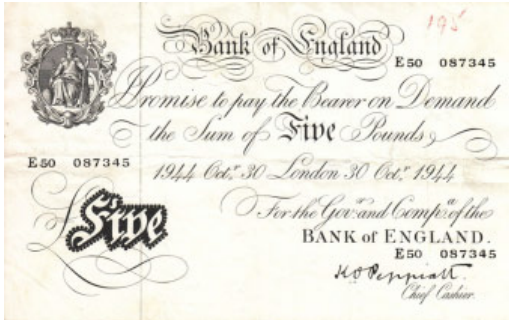 195
Bank of England
E50 087345
Promise to pay the Bearer on Demand
the Sum of Five Pounds
E50 087345
1944 Octr. 30 London 30 Octr. 1944
For the Govr. and Compa. of the
Five
BANK of ENGLAND.
E50 087345
K O Peppiatt
Chief Cashier.